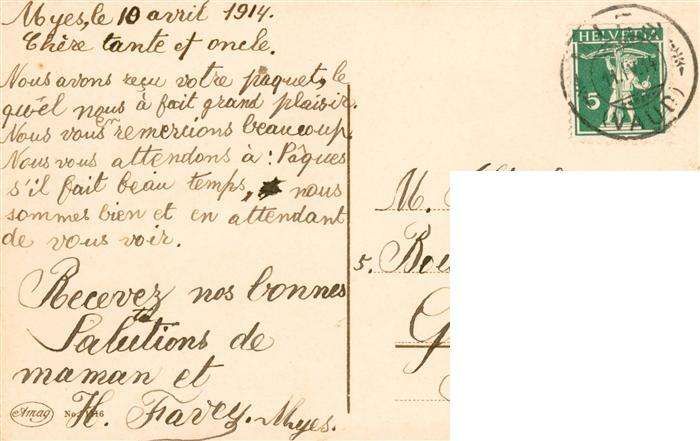 Myes, le 10 avril 1914.
Chère tante et oncle.
Nous avons reçu votre paquet, le
quèl nous à fait grand plaisir.
Nous vous en remercions beaucoup.
Nous vous attendons à: Pâques
s'il fait beau temps, nous
sommes bien et en attendant
de vous voir.
Recevez nos bonnes
Salutations de
maman et
H. Favey. Myes.
Amag
HELVETIA
5
(VAUD)
M.
5.